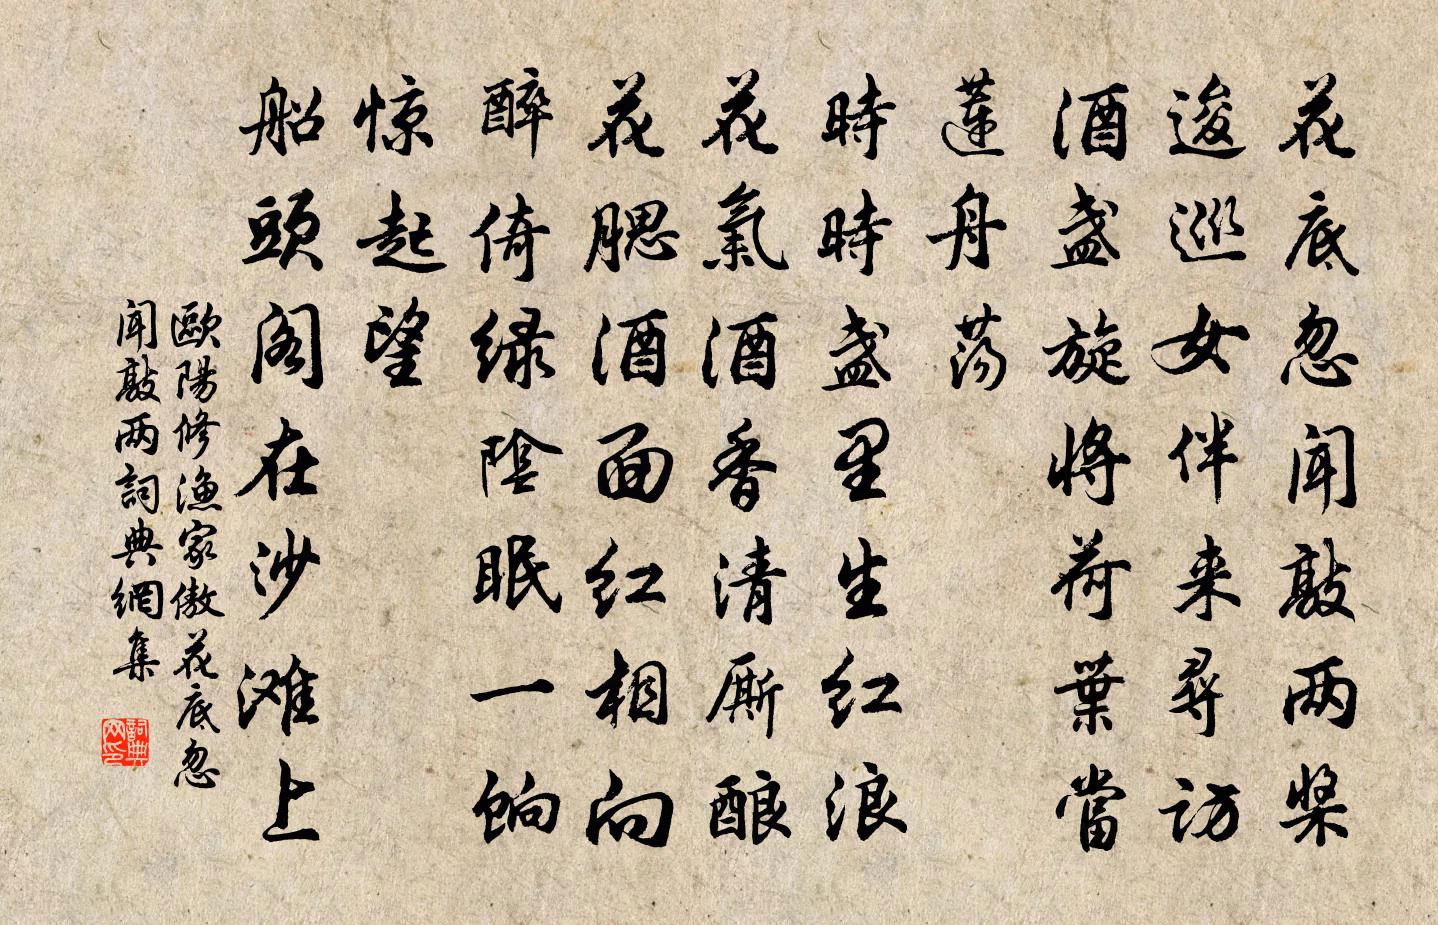 花底忽闻敲两桨
逡巡女伴来尋訪
酒盏旋将荷葉當
莲舟荡
時時盏里生红浪
花氣酒香清厮酿
花腮酒面红相向
醉倚绿陰眠一饷
惊起望
船頭阁在沙滩上
歐陽修漁家傲花底忽
闻敲两詞典網集
詞典
网印